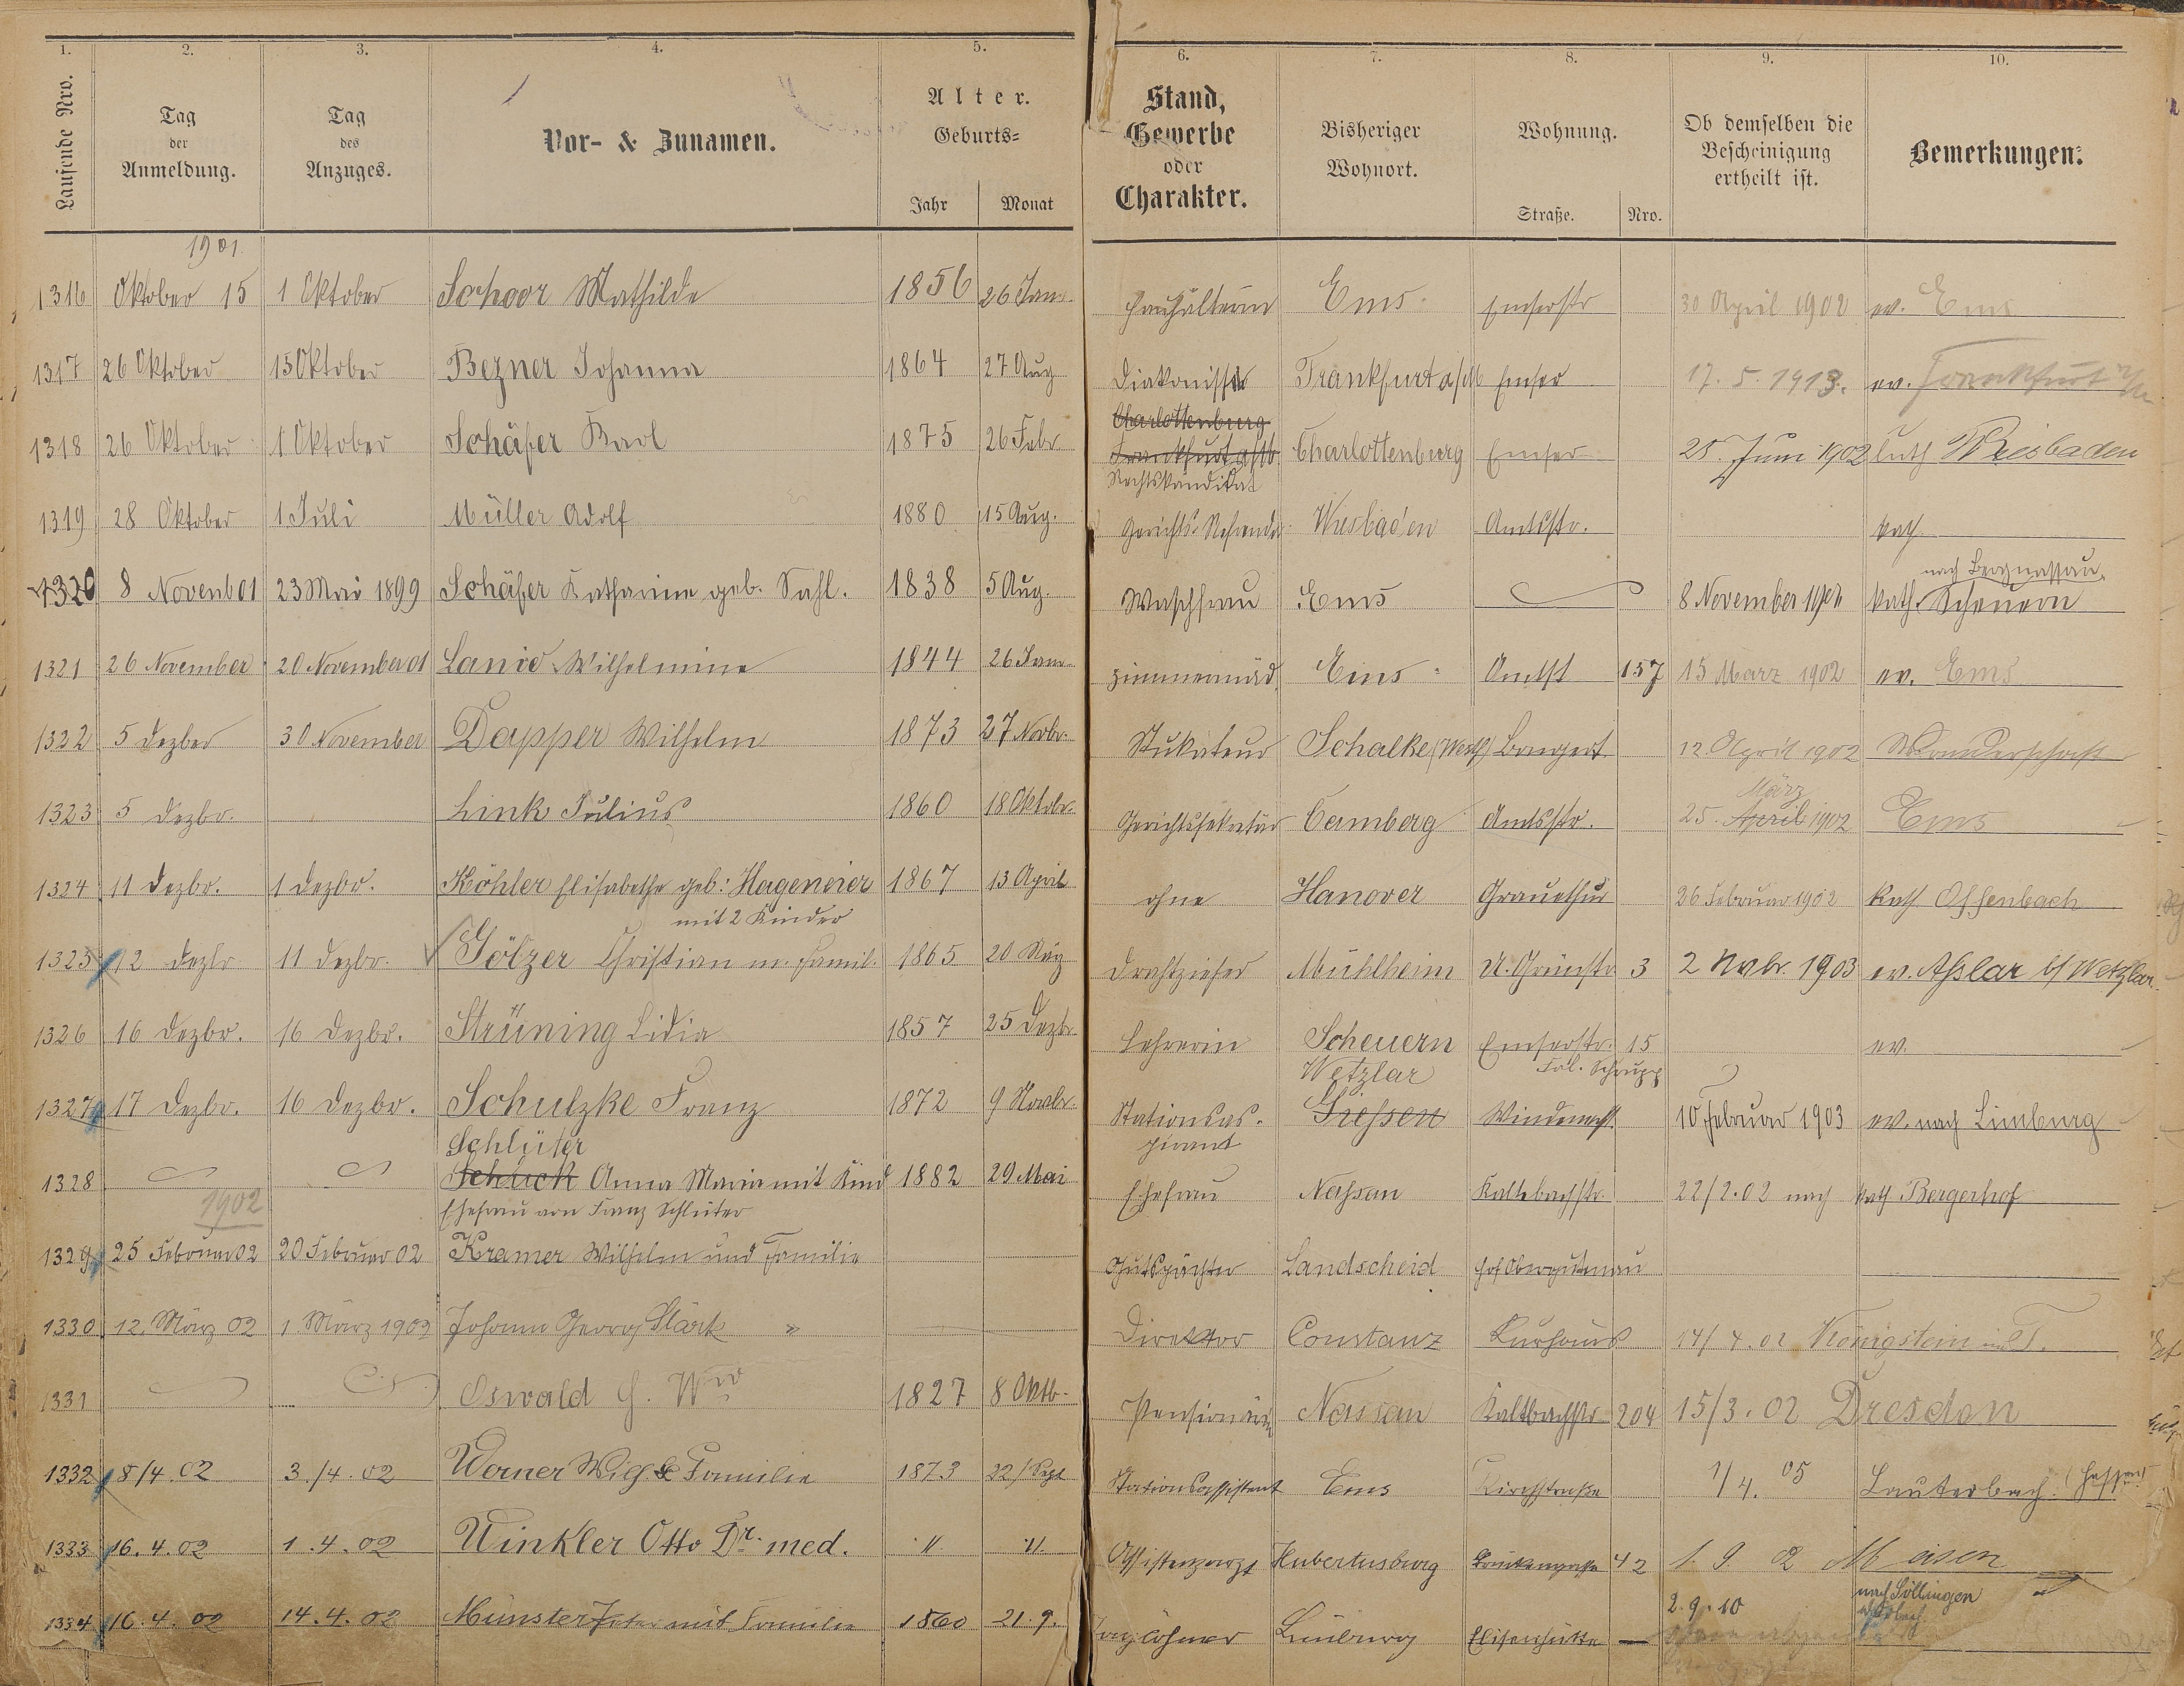 1. 2. 3. 4. 5. 6. 7. 8. 9. 10.
Laufende Nro. Tag der Anmeldung. Tag des Anzuges. Vor- & Zunamen. Alter. Geburts= Jahr Monat Stand, Gewerbe oder Charakter. Bisheriger Wohnort. Wohnung. Straße. Nro. Ob demselben die Bescheinigung ertheilt ist. Bemerkungen.
1901.
1316 Oktober 15 1 Oktober Schoor Mathilde 1856 26 Jan. Haushälterin Ems Emserstr 30 April 1902 ev. Ems
1317 26 Oktober 15 Oktober Bezner Johanna 1864 27 Aug Diakonissin Frankfurt a/M Emser 17. 5. 1913. ev. Frankfurt a/M
Charlottenburg
1318 26 Oktober 1 Oktober Schäfer Karl 1875 26 Febr Frankfurt a/M Charlottenburg Emser 25. Juni 1902 luth Wiesbaden
Rechtskandidat
1319 28 Oktober 1 Juli Müller Adolf 1880 15 Aug. Gerichts-Referendr. Wiesbaden Amtsstr. kath.
nach Bergnassau
1320 8 Novemb 01 23 Mai 1899 Schäfer Katharine geb. Sahl. 1838 5 Aug. Waschfrau Ems 8 November 1901 kath. Scheuern
1321 26 November 20 November 01 Lanio Wilhelmine 1844 26 Jan Zimmermäd. Ems Amtst 157 15 März 1902 ev. Ems
1322 5 Dezber 30 November Dapper Wilhelm 1873 27 Novbr. Stukateur Schalke (Westf) Bongert 12 April 1902 Wanderschaft
März
1323 5 Dezbr. Link Julius 1860 18 Oktobr. Gerichtssekretär Camberg Amtsstr. 25. April 1902 Ems
1324 11 Dezbr. 1 Dezbr. Köhler Elisabethe geb: Hageneier 1867 13 April ohne Hanover Grauethur 26 Februar 1902 Kath Offenbach
mit 2 Kinder
1325 12 Dezbr 11 Dezbr. Gölzer Christian m. Famil. 1865 20 Drahtzieher Mühlheim U. Grünstr. 3 2 Nvbr. 1903 ev. Aßlar b/ Wetzlar
1326 16 Dezbr. 16 Dezbr. Strüning Lidia 1857 25 Dezbr. Lehrerin Scheuern Emserstr. 15 ev.
Wetzlar Frl. Schrupp
1327 17 Dezbr. 16 Dezbr. Schulzke Franz 1872 9 Novbr. Stationsas- Giessen 10 Februar 1903 ev. nach Limburg
Schlüter pirant
1328 Schuck Anna Maria mit Kind 1882 29 Mai Ehefrau Nassau Kaltbachstr. 22/2.02 nach kath. Bergerhof
1902 Ehefrau von Franz Schlüter
1329 25 Februar 02 20 Februar 02 Kramer Wilhelm und Familie Gutspächter Landscheid Hof Obergutenau
1330 12. März 02 1. März 1902 Johann Georg Stärk " Direktor Constanz Kurhaus 14/4.02 Königstein i. T.
1331 Oswald G. Ww 1827 8 Oktb. Pensionärin Nassau Kaltbachstr 204 15/3.02 Dresden
1332 8/4.02 3./4.02 Werner Wilh. & Familie 1873 22/Sept Stationsassistent Ems Kirchstraße 1/4.05 Lauterbach (Hessen)
1333 16.4.02 1.4.02 Winkler Otto Dr. med. " " Assistenzarzt Hubertusburg Brückengasse 42 1. 9. 02 Meisen
2.9.10 nach Söllingen
1334 16.4.02 14.4.02 Münster Peter mit Familie 1860 21.9. Taglöhner Limburg Elisenhütte —